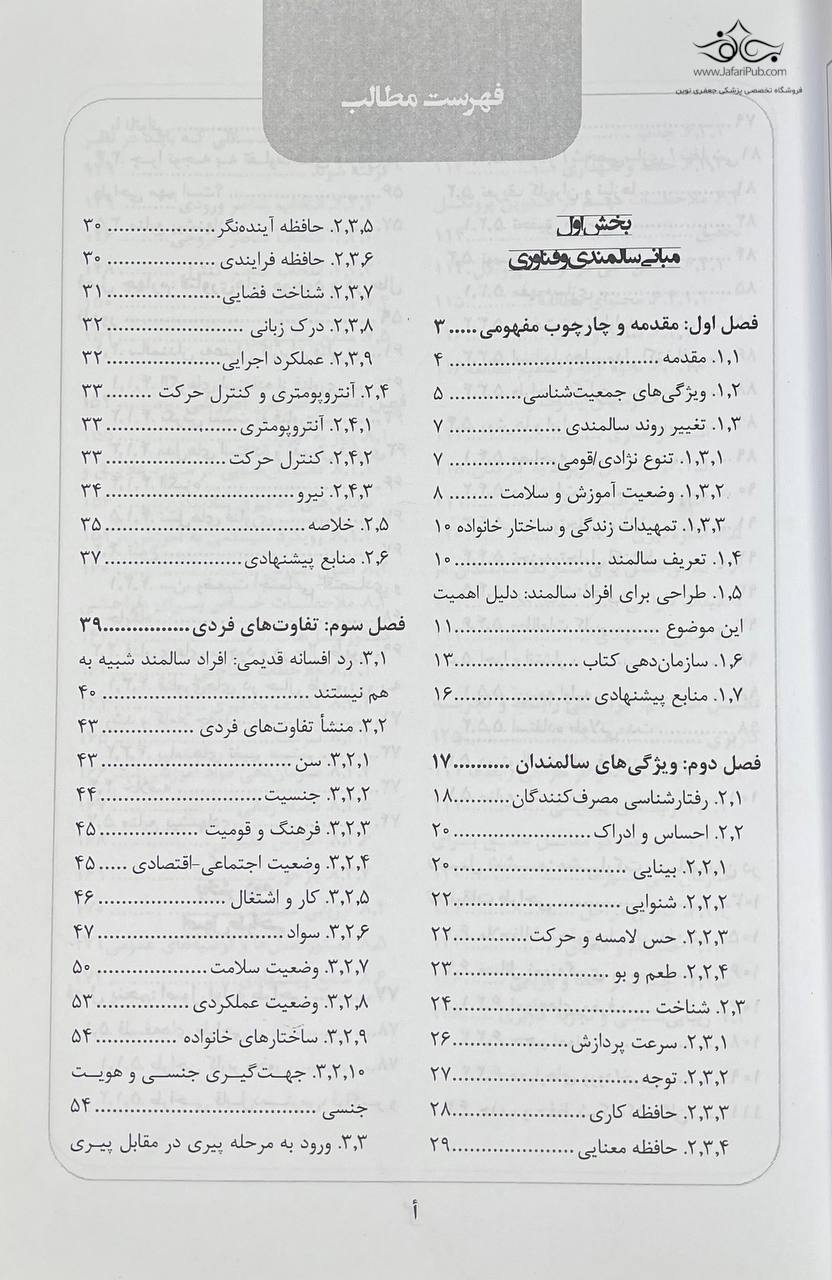 www.JafariPub.com
فروشگاه تخصصی پزشکی جعفری نوین
فهرست مطالب
بخش اول
مبانی سالمندی و فناوری
فصل اول: مقدمه و چارچوب مفهومی ..... ۳
۱,۱. مقدمه ..... ۴
۱,۲. ویژگی‌های جمعیت‌شناسی ..... ۵
۱,۳. تغییر روند سالمندی ..... ۷
۱,۳,۱. تنوع نژادی/قومی ..... ۷
۱,۳,۲. وضعیت آموزش و سلامت ..... ۸
۱,۳,۳. تمهیدات زندگی و ساختار خانواده ۱۰
۱,۴. تعریف سالمند ..... ۱۰
۱,۵. طراحی برای افراد سالمند: دلیل اهمیت
این موضوع ..... ۱۱
۱,۶. سازمان‌دهی کتاب ..... ۱۳
۱,۷. منابع پیشنهادی ..... ۱۶
فصل دوم: ویژگی‌های سالمندان ..... ۱۷
۲,۱. رفتارشناسی مصرف‌کنندگان ..... ۱۸
۲,۲. احساس و ادراک ..... ۲۰
۲,۲,۱. بینایی ..... ۲۰
۲,۲,۲. شنوایی ..... ۲۲
۲,۲,۳. حس لامسه و حرکت ..... ۲۲
۲,۲,۴. طعم و بو ..... ۲۳
۲,۳. شناخت ..... ۲۴
۲,۳,۱. سرعت پردازش ..... ۲۶
۲,۳,۲. توجه ..... ۲۷
۲,۳,۳. حافظه کاری ..... ۲۸
۲,۳,۴. حافظه معنایی ..... ۲۹
۲,۳,۵. حافظه آینده‌نگر ..... ۳۰
۲,۳,۶. حافظه فرایندی ..... ۳۰
۲,۳,۷. شناخت فضایی ..... ۳۱
۲,۳,۸. درک زبانی ..... ۳۲
۲,۳,۹. عملکرد اجرایی ..... ۳۲
۲,۴. آنتروپومتری و کنترل حرکت ..... ۳۳
۲,۴,۱. آنتروپومتری ..... ۳۳
۲,۴,۲. کنترل حرکت ..... ۳۳
۲,۴,۳. نیرو ..... ۳۴
۲,۵. خلاصه ..... ۳۵
۲,۶. منابع پیشنهادی ..... ۳۷
فصل سوم: تفاوت‌های فردی ..... ۳۹
۳,۱. رد افسانه قدیمی: افراد سالمند شبیه به
هم نیستند ..... ۴۰
۳,۲. منشأ تفاوت‌های فردی ..... ۴۳
۳,۲,۱. سن ..... ۴۳
۳,۲,۲. جنسیت ..... ۴۴
۳,۲,۳. فرهنگ و قومیت ..... ۴۵
۳,۲,۴. وضعیت اجتماعی-اقتصادی ..... ۴۵
۳,۲,۵. کار و اشتغال ..... ۴۶
۳,۲,۶. سواد ..... ۴۷
۳,۲,۷. وضعیت سلامت ..... ۵۰
۳,۲,۸. وضعیت عملکردی ..... ۵۳
۳,۲,۹. ساختارهای خانواده ..... ۵۴
۳,۲,۱۰. جهت‌گیری جنسی و هویت
جنسی ..... ۵۴
۳,۳. ورود به مرحله پیری در مقابل پیری
أ